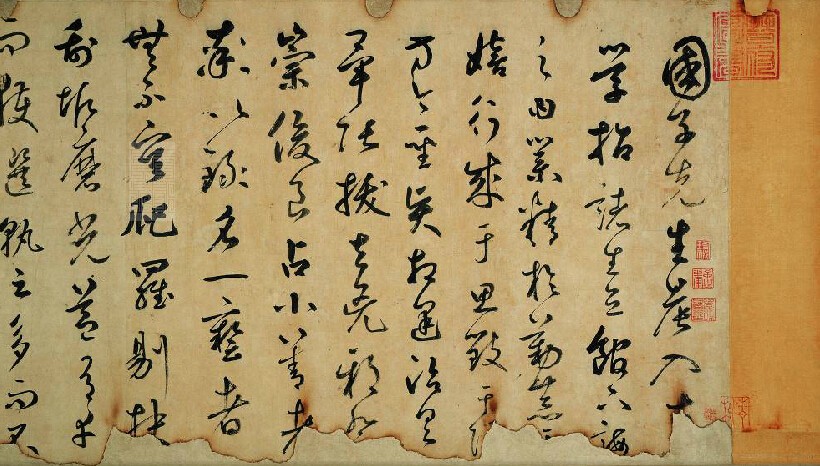 國子先生晨入太
學招諸生立館下誨
之曰業精於勤荒于
嬉行成于思毀于隨
方今聖賢相逢治具
畢張拔去兇邪登
崇俊良占小善者
率以錄名一藝者
無不庸爬羅剔抉
刮垢磨光蓋有幸
而獲選孰云多而不